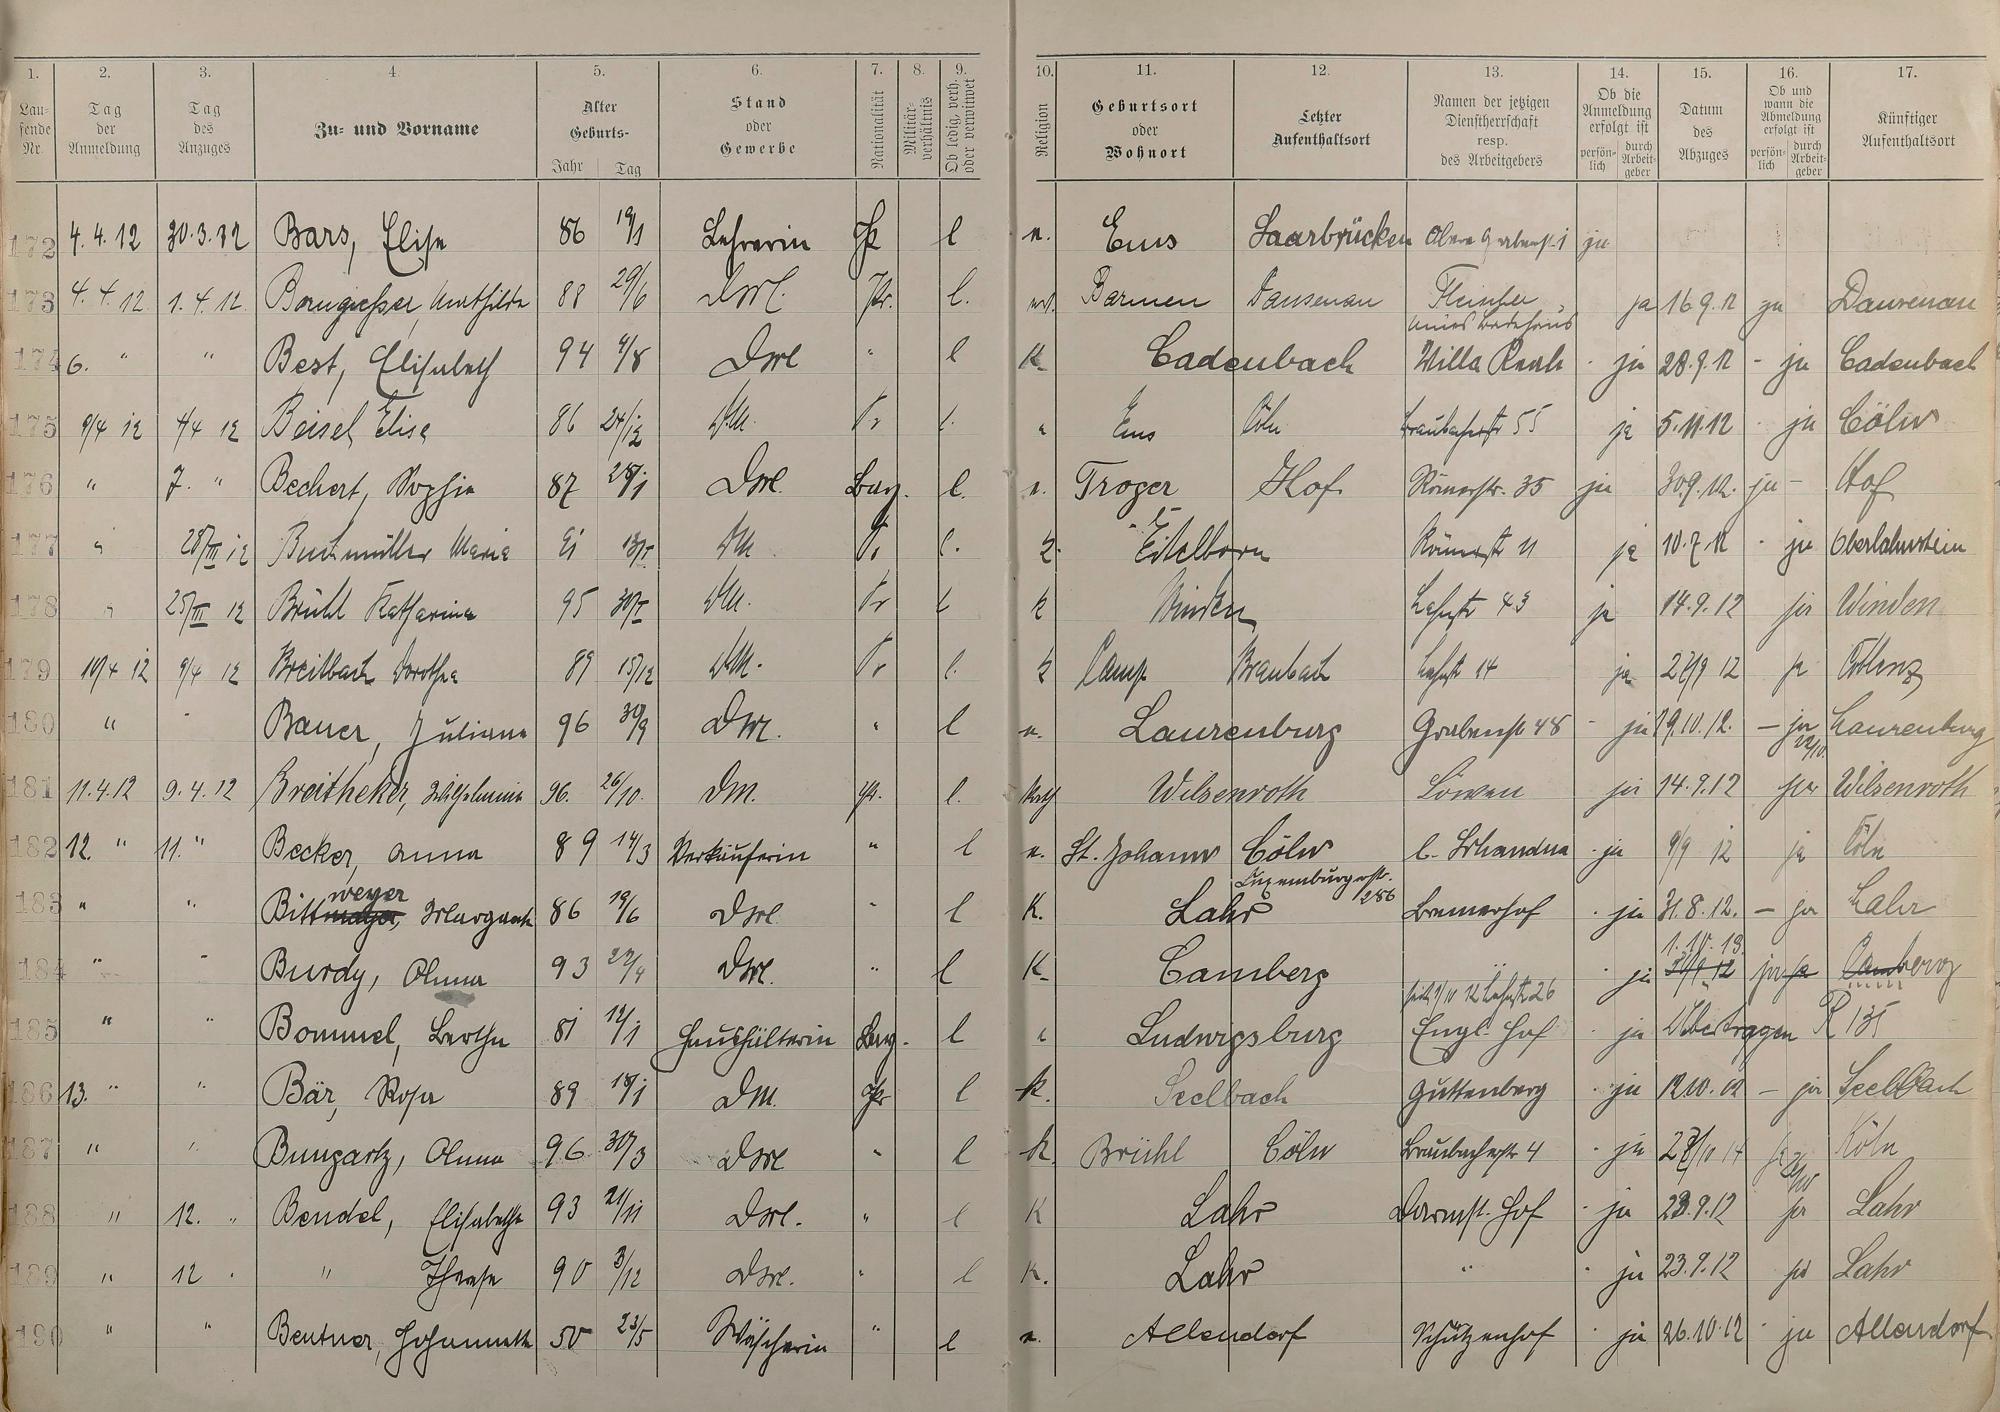 1. 2. 3. 4. 5. 6. 7. 8. 9. 10. 11. 12. 13. 14. 15. 16. 17.
Lau-
fende
Nr.
Tag
der
Anmeldung
Tag
des
Anzuges
Zu- und Vorname
Alter
Geburts-
Jahr Tag
Stand
oder
Gewerbe
Nationalität
Militär-
verhältnis
Ob ledig, verh.
oder verwitwet
Religion
Geburtsort
oder
Wohnort
Letzter
Aufenthaltsort
Namen der jetzigen
Dienstherrschaft
resp.
des Arbeitgebers
Ob die
Anmeldung
erfolgt ist
persön-
lich
durch
Arbeit-
geber
Datum
des
Abzuges
Ob und
wann die
Abmeldung
erfolgt ist
persön-
lich
durch
Arbeit-
geber
Künftiger
Aufenthaltsort
172 4.4.12 30.3.12 Bars, Elise 86 19/1 Lehrerin Pr l e. Ems Saarbrücken Obere Grabenst. 1 ja
173 4.4.12 1.4.12 Borngiesser, Mathilde 88 29/6 Pr. l. Barmen Dausenau ja 16 9.12 ja Dausenau
174 6. " " Best, Elisabeth 94 4/8 " l K. Cadenbach Villa - ja 28.9.12 - ja Cadenbach
175 9/4 12 4/4 12 Beisel Elise 86 24/12 Pr l. " Ems Cöln Braubacherstr 55 ja 5.11.12 · ja Cöln
176 " 7. " Bechert, Sophie 87 28/1 Bay. l. e. Troger Hof Römerstr. 35 ja 30.9.12. ja - Hof
177 " 28/III 12 Buchmüller Maria 91 Pr l. k. Eitelborn Römerstr 11 ja 10.7.12 · ja Oberlahnstein
178 " 25/III 12 Brühl Katharina 95 Pr l k Winden Lahnstr 43 ja 14.9.12 ja Winden
179 10/4 12 9/4 12 Breitbach Dorothea 89 15/12 Pr l. k Camp Braubach Lahnstr 14 ja 27/9 12 ja Coblenz
180 " " Bauer, Juliane 96 30/9 " l e. Laurenburg Grabenst. 48 - ja 19.10.12. - ja 22/10. Laurenburg
181 11.4.12 9.4.12 Breitheker, Wilhelmine 96. 26/10. Dm. pr. l. Kath Wilsenroth Löwen ja 14.9.12 ja Wilsenroth
182 12. " 11. " Becker, Anna 89 14/3 Verkäuferin " l e. St. Johann Cöln ja 9/9 12 ja Cöln
Luxemburgerstr. 286
183 " " Bittmayer weyer, Margareth 86 19/6 " l K. Lahr Bremerhof · ja 31.8.12. - ja Lahr
184 " " Burdy, Anna 93 22/4 " l K. Camberg " · ja 1.10.13 ja ja Camberg
seit 1/10 12 Lahnstr 26
185 " " Bommel, Bertha 81 12/1 Haushälterin Bay. l Ludwigsburg Engl. Hof · ja Übertragen R 135
186 13. " " Bär, Rosa 89 18/1 DM. Pr l k. Seelbach Guttenberg · ja 12.10.12 - ja Seelbach
187 " " Bungartz, Anna 96 30/3 " l k. Brühl Cöln Braubacherstr 4 · ja ja Köln
188 " 12. " Bendel, Elisabetha 93 21/11 " l K Lahr Darmst. Hof · ja 23.9.12 ja Lahr
189 " 12 " " Therese 90 3/12 " l K. Lahr " · ja 23.9.12 ja Lahr
190 " " Bentner, Johannette 50 23/5 Wäscherin " l e. Allendorf Schützenhof · ja 26.10.12 · ja Allendorf